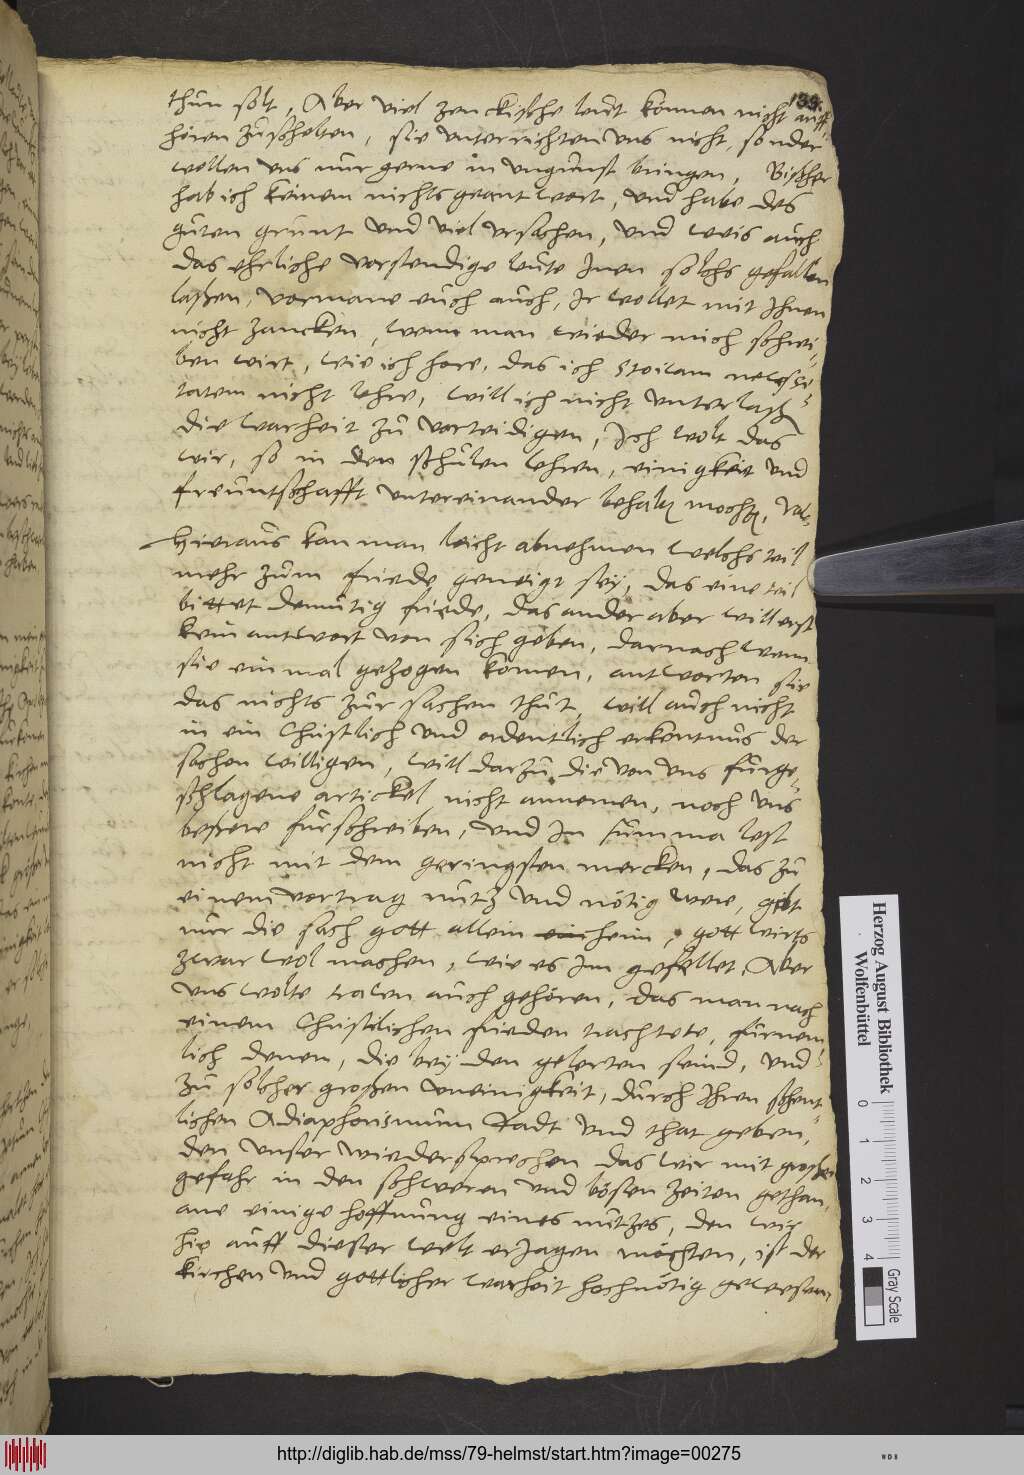 139.
thun solt, Aber viel zenckische leut können nicht auff
hören zuschelten, sie unterrichten uns nicht, sonder
wollen uns nur gerne in ungunst bringen, Bisher
hab ich keinem nichts geantwort, und habe des
guten grunt und viel ursachen, und weis auch
das ehrliche vorstendige leute Inen solchs gefallen
laßen, vormane euch auch, Ir wollet mit Ihnen
nicht zancken, wenn man wieder mich schrei-
ben wirt, wie ich hore, das ich Stoicam necessi-
tatem nicht lehre, will ich nicht unterlaßen
die warheit zu vorteidigen, Ich wolt das
wir, so in den schulen lehren, einigkeit und
freuntschafft untereinander behalten mochten, Vale.
Hieraus kan man leicht abnehmen welchs teil
mehr zum friede geneigt sey, das eine teil
bittet demütig friede, das ander aber will erst
kein antwort von sich geben, darnach wenn
sie einmal gezogen komen, antworten sie
das nichts zur sachen thut, will auch nicht
in ein Christlich und ordentlich erkentnus der
sachen willigen, will darzu die von uns furge-
schlagene artickel nicht annemen, noch uns
bessere furschreiben, und In summa lest
nicht mit dem geringsten mercken, das zu
einem vortrag nutz und nötig were, gibt
nur die sach gott allein heim, gott wirts
zwar wol machen, wie es Im gefellet, Aber
uns wolte auch gehören, das man nach
einem Christlichen frieden trachtete, furnem-
lich denen, die bey den gelerten seind, und
zu solcher großen uneinigkeit, durch Ihren schent-
lichen Adiaphorismum Radt und that geben,
den unser wiedersprechen das wir mit großer
gefahr in den schweren und bösen zeiten gethan,
ane einige hoffnung eines nutzes, den wir
hie auff dieser welt erJagen möchten, ist der
kirchen und gottlicher warheit hochnötig gewesen,
Herzog August Bibliothek
Wolfenbüttel
0 1 2 3 4
Gray Scale
http://diglib.hab.de/mss/79-helmst/start.htm?image=00275